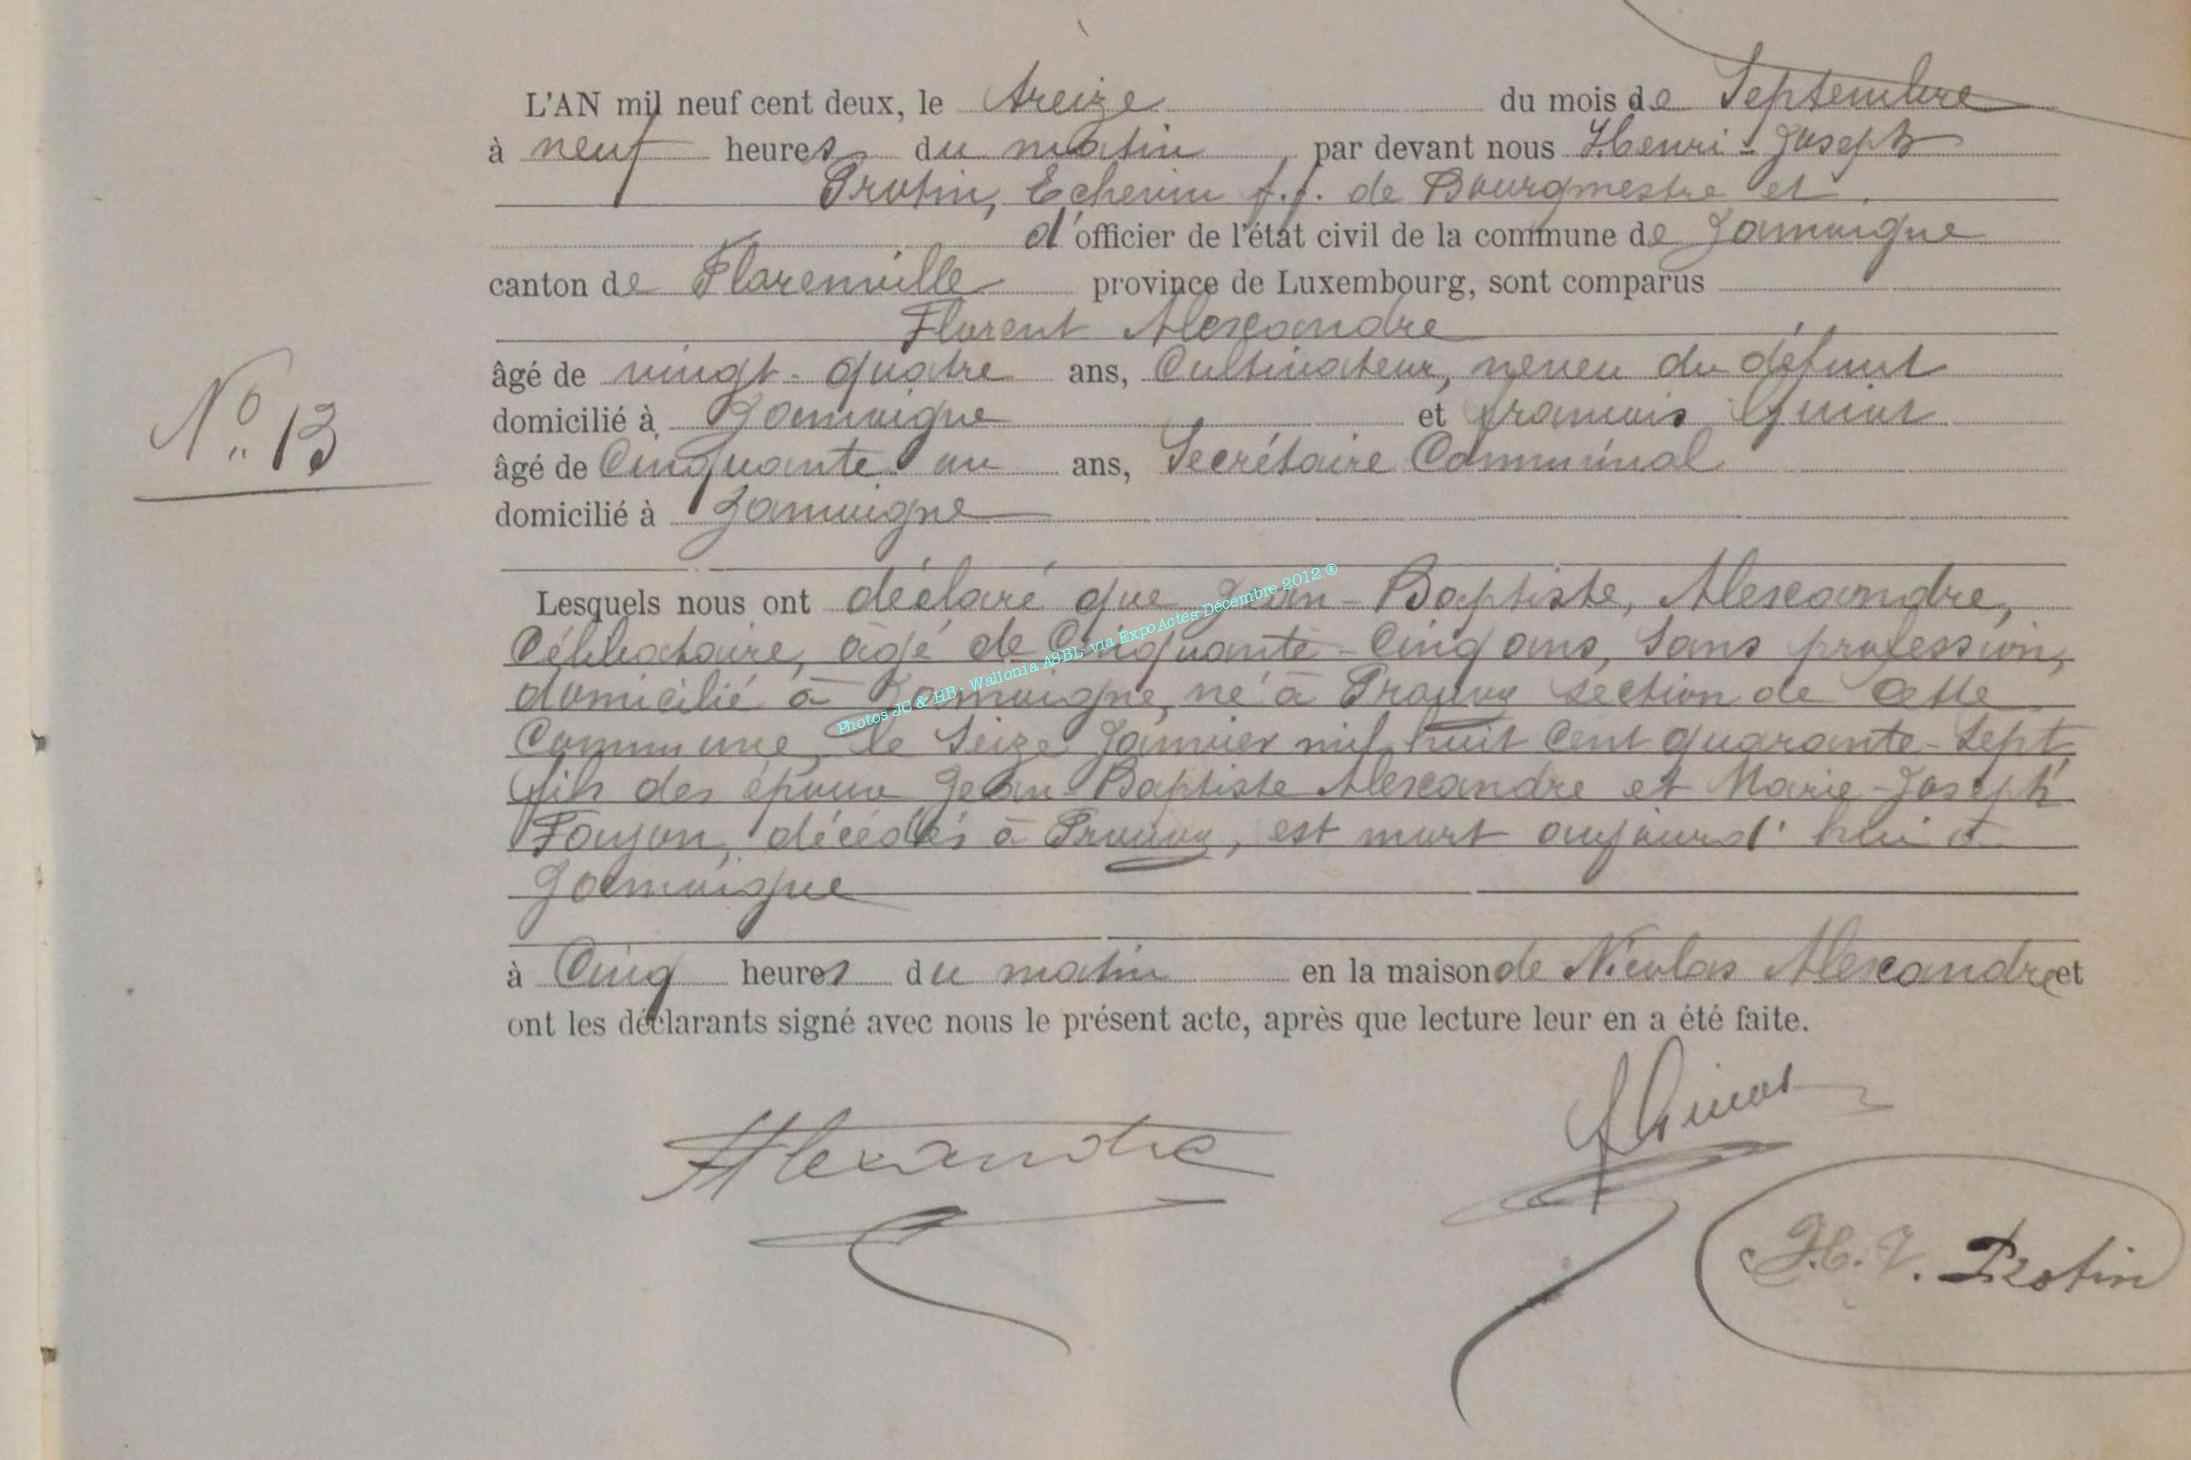 L'AN mil neuf cent deux, le treize du mois de Septembre
à neuf heures du matin, par devant nous Henri-Joseph
Protin, Echevin f.f. de Bourgmestre et
d'officier de l'état civil de la commune de Jamoigne
canton de Florenville province de Luxembourg, sont comparus
Florent Alexandre
âgé de vingt-quatre ans, Cultivateur, neveu du défunt
domicilié à Jamoigne et François Guiot
N° 13
âgé de Cinquante un ans, Secrétaire Communal
domicilié à Jamoigne
Lesquels nous ont déclaré que Jean-Baptiste, Alexandre,
Célibataire, âgé de Cinquante-Cinq ans, sans profession,
domicilié à Jamoigne, né à Prouvy section de cette
Commune, le seize Janvier mil huit cent quarante-sept,
fils des époux Jean Baptiste Alexandre et Marie-Joseph
Foujon, décédés à Prouvy, est mort aujourd'hui à
Jamoigne
à Cinq heures du matin en la maison de Nicolas Alexandre et
ont les déclarants signé avec nous le présent acte, après que lecture leur en a été faite.
Alexandre
Guiot
H. J. Protin
Photos JC & HB - Wallonia ASBL via ExpoActes Décembre 2012 ®